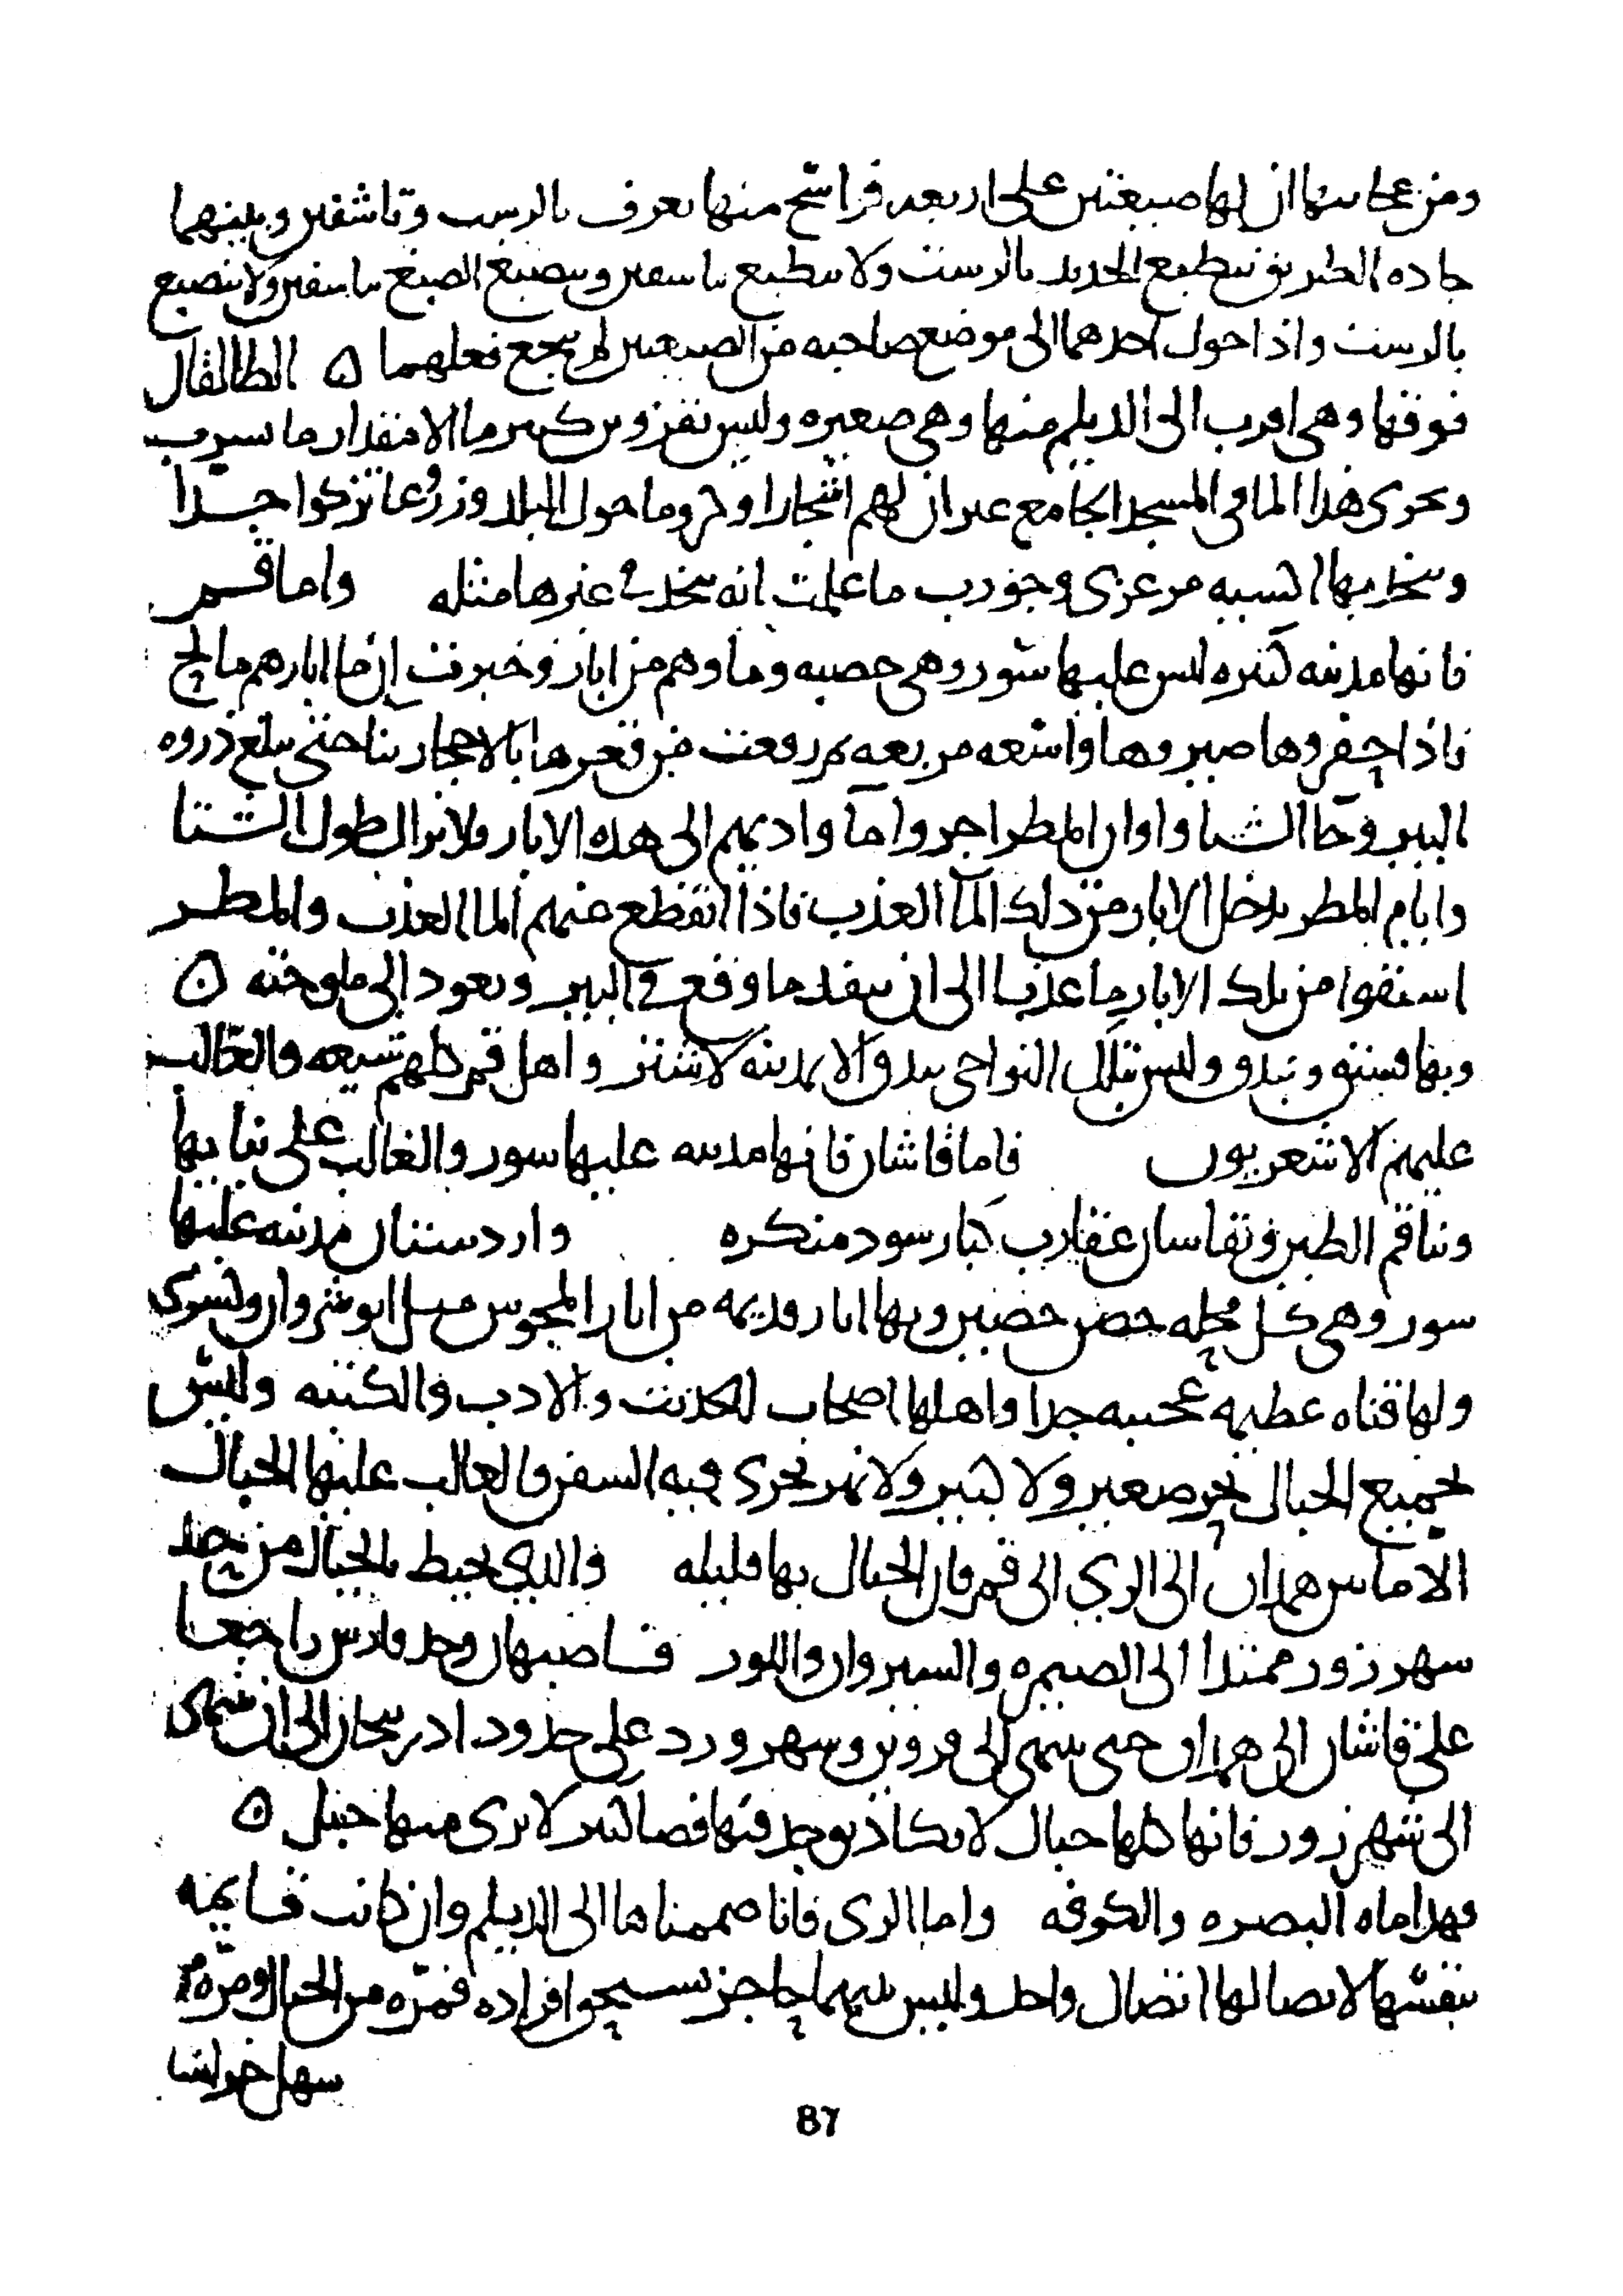 ومن عجائبها ان لها صبيغتين على اربعه فراسخ منها يعرف بالرست وتاشفين وبينهما
جاده الطريق ينطبع الحديد بالرست ولا ينطبع بتاسفين وينصبغ الصبغ بتاسفين ولا ينصبغ
بالرست واذا حول احدهما الى موضع صاحبه من الصبيغتين لم ينجع فعلهما ه الطالقان
فوقها وهي اقرب الى الديلم منها وهي صغيره وليس بقزوين كثير ما الا مقدار ما يشرب
ويجرى هذا الما في المسجد الجامع غير ان لهم اشجارا وكروما حول البلد وزروعا تزكوا جدا
ويتخذ بها اكسيه مرعزى وجورب ما علمت انه يتخذ في غيرها مثله واما قم
فانها مدينه كبيره ليس عليها سور وهي خصبه وماوهم من ابار وخبرت ان ما ابارهم مالح
فاذا حفروها صيروها واسعه مربعه ثم رفعت من قعرها بالاحجار بنا حتى يبلغ ذروه
البير وجا الشتا واوان المطر اجروا ما واديهم الى هذه الابار ولا يزال طول الشتا
وايام المطر يدخل الابار من ذلك الما العذب فاذا انقطع عنهم الما العذب والمطر
استقوا من تلك الابار ما عذبا الى ان ينفد ما وقع في البير ويعود الى ملوحته ه
وبها فستق وبندق وليس بتلك النواحي بندق الا بمدينه لاشتر واهل قم كلهم شيعه والغالب
عليهم الاشعريون فاما قاشان فانها مدينه عليها سور والغالب على بنايها
وبنا قم الطين وبقاسان عقارب كبار سود منكره واردستان مدينه عليها
سور وهي كل محله حصن حصين وبها اثار قديمه من اثار المجوس مثل انوشروان
ولها قناه عظيمه عجيبه جدا واهلها اصحاب للحديث والادب والكتبه وليس
بجميع الجبال بحر صغير ولا كبير ولا نهر يجرى فيه السفن والغالب عليها الجبال
الا ما بين همذان الى الري الى قم فان الجبال بها قليله والذي يحيط بالجبال من حد
شهرزور ممتدا الى الصيمره والسيروان واللور فاصبهان وحد فارس راجعا
على قاشان الى همذان حتى ينتهى الى قزوين وسهرورد على حدود اذربيجان الى ان ينتهى
الى شهرزور فانها كلها جبال لا يكاد يوجد فيها فضا كبير لا يرى منها جبل ه
فهذا ماه البصره والكوفه واما الرى فانا صممناها الى الديلم وان كانت قايمه
بنفسها لاتصالها اتصال واحد وليس بينهما حاجز يستحق افراده فمره من الجبال ومره من
87